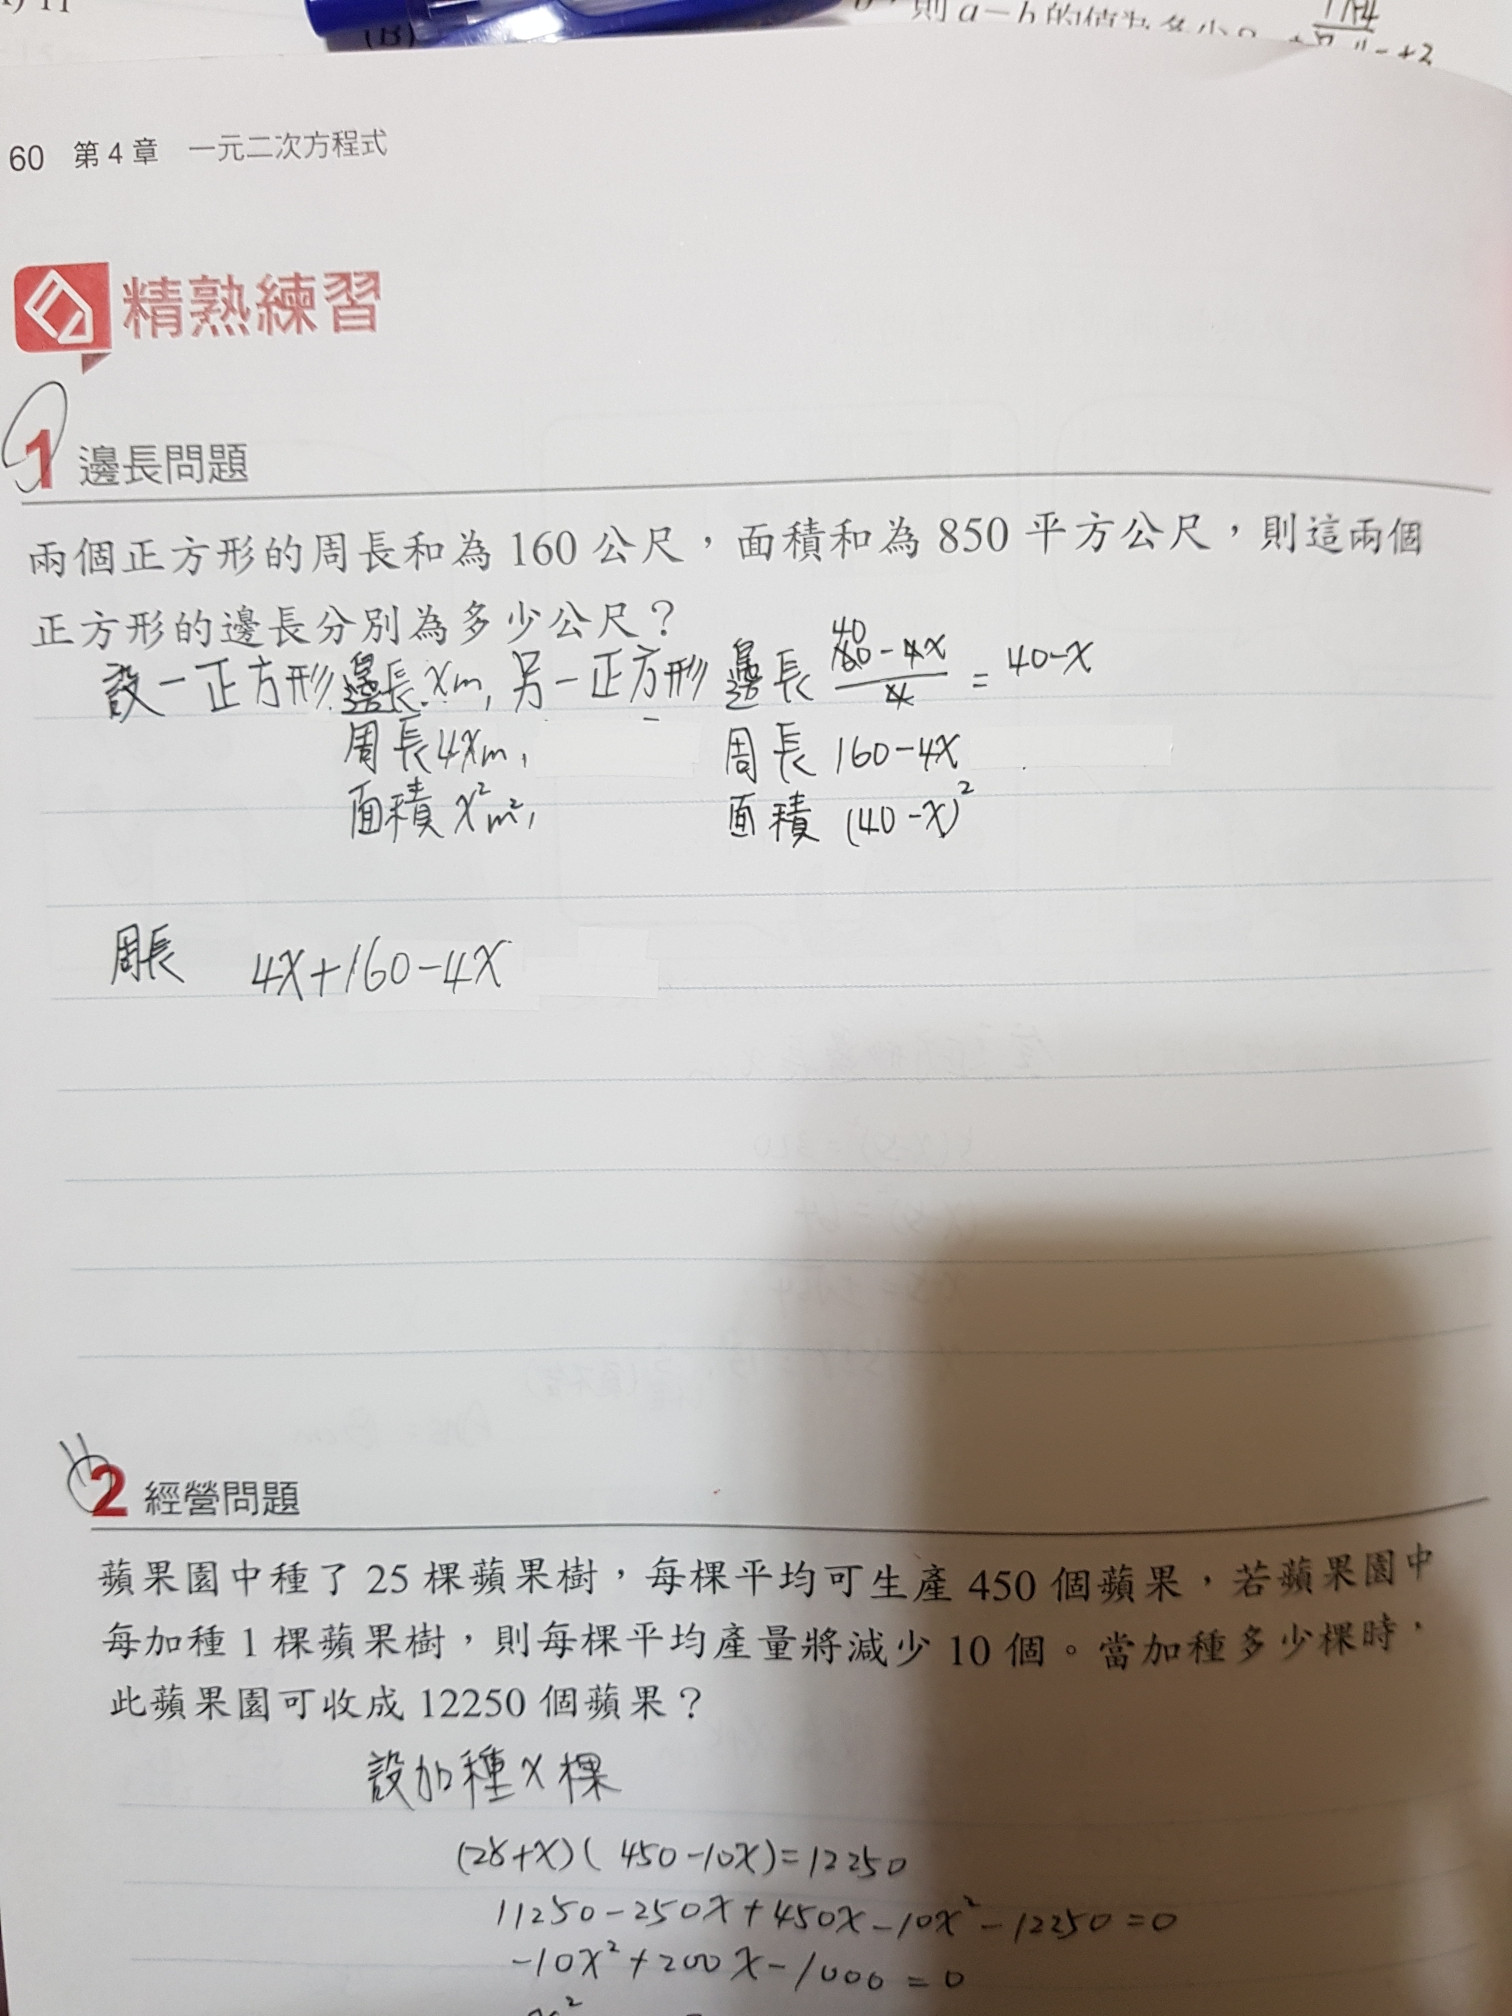 則a-b的值為多少?
(B)
60 第4章 一元二次方程式
精熟練習
1 邊長問題
兩個正方形的周長和為 160 公尺,面積和為 850 平方公尺,則這兩個
正方形的邊長分別為多少公尺?
設一正方形邊長xm, 另一正方形邊長 (160-4x)/4 = 40-x
周長4xm, 周長 160-4x
面積 x²m², 面積 (40-x)²
周長 4x+160-4x
2 經營問題
蘋果園中種了 25 棵蘋果樹,每棵平均可生產 450 個蘋果,若蘋果園中
每加種 1 棵蘋果樹,則每棵平均產量將減少 10 個。當加種多少棵時,
此蘋果園可收成 12250 個蘋果?
設加種x棵
(25+x)(450-10x)=12250
11250-250x+450x-10x²-12250=0
-10x²+200x-1000=0